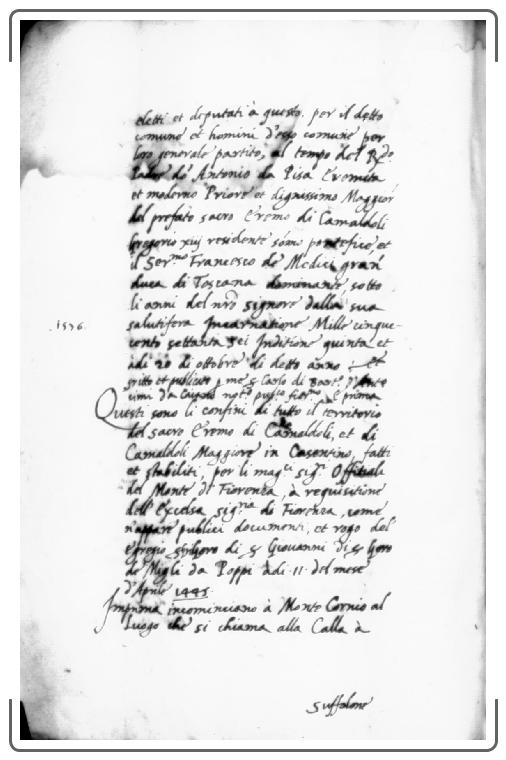 eletti et deputati à questo. per il detto
comune et homini d'esso comune per
loro generale partito, al tempo del R.do
Padre do' Antonio da Pisa Eremita
et moderno Priore et dignissimo Maggior
del prefato sacro Eremo di Camaldoli
Gregorio xiij residente sómo pontefice, et
il Ser.mo Francesco de' Medici gran
duca di Toscana dominante, sotto
li anni del nrõ signore dalla sua
1576. salutifera Incarnatione Mille cinque-
cento settanta sei Inditione quinta et
adi 20 di ottobre di detto anno; Et
scritto et publicato p me s Carlo di
prima
Questi sono li confini di tutto il territorio
del sacro Eremo di Camaldoli, et di
Camaldoli Maggiore in Casentino, fatti
et stabiliti, per li mag.ci sig.ri Offitiali
del Monte di Fiorenza, à requisitione
dell' Excelsa sig.ria di Fiorenza, come
n'appare publici documenti, et rogo del
Egregio di s Giovanni di s
de' Migli da Poppi àdi .11. del mese
d'Aprile 1445.
Imprima incominciano à Monte Cornio al
Luogo che si chiama alla Calla à
Suffolone